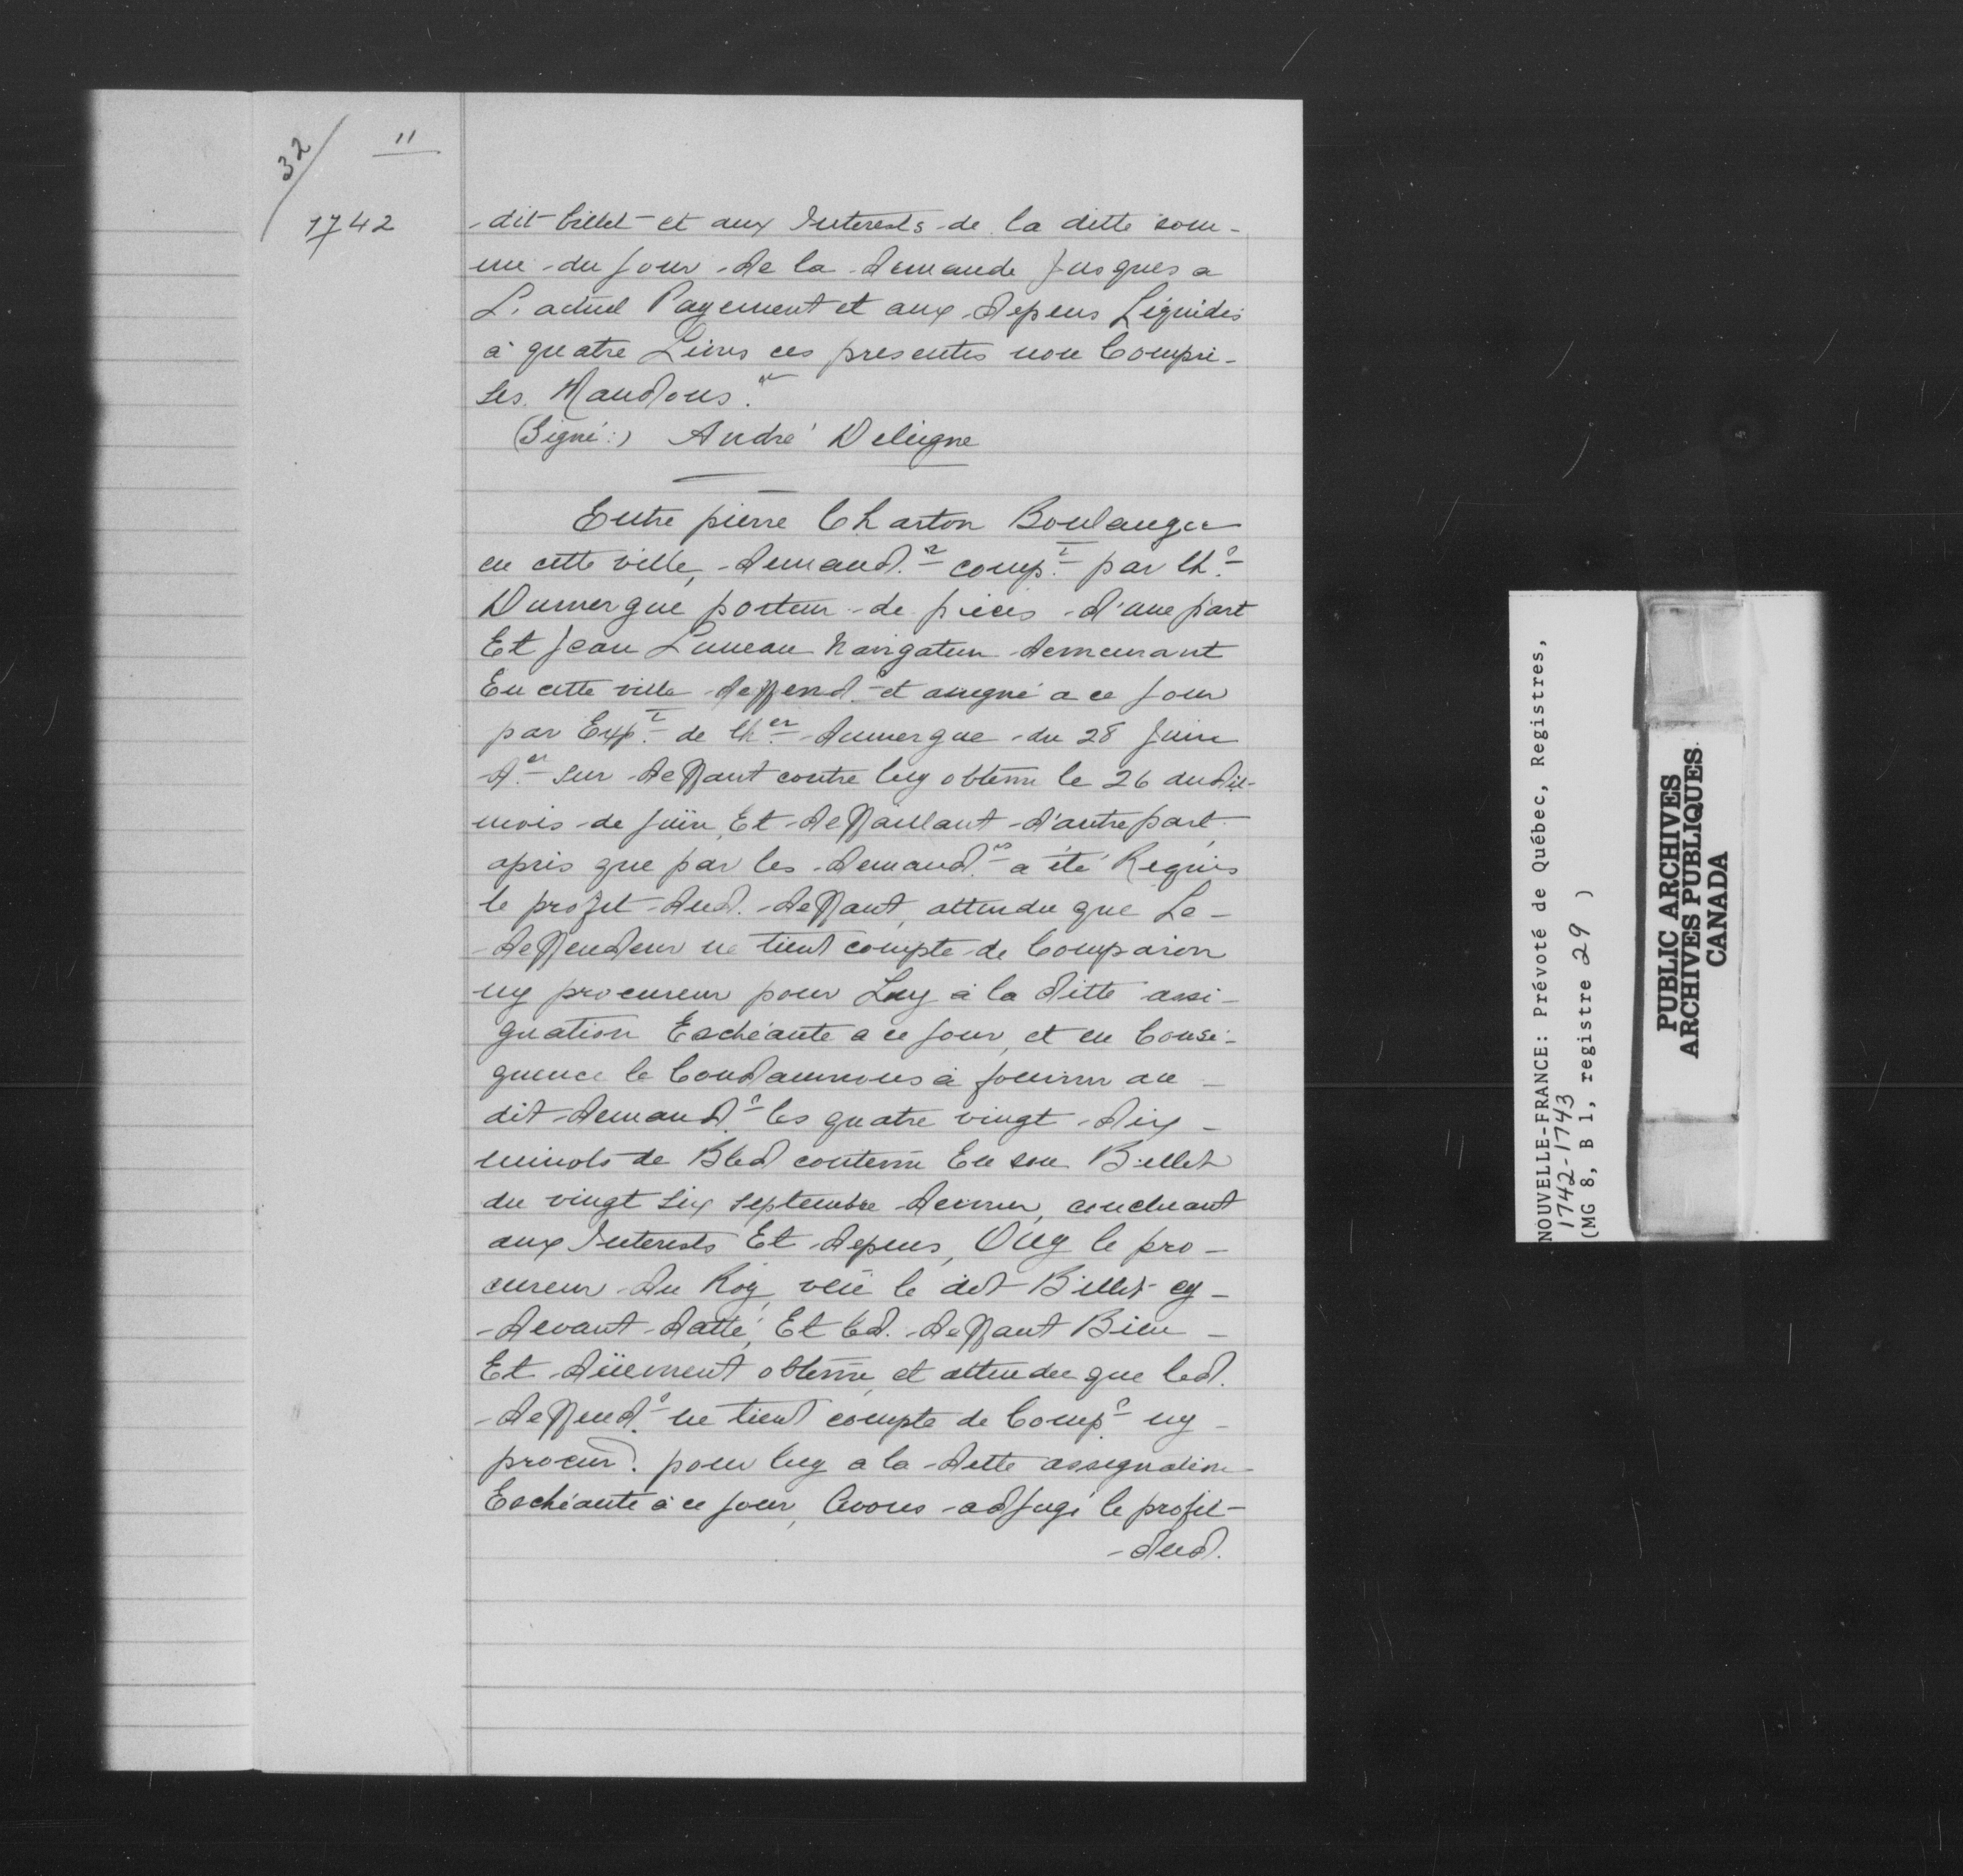 32/ 11
1742
-dit billet et aux Interests de la ditte som-
me du Jour de la demande Jusques a
L'actuel Payement et aux depens Liquidés
à quatre Livres ces presentes non Compri-
ses. Mandons."
(Signé:) André Deleigne
Entre pierre Charton Boulanger
en cette ville, demand.r comp.t par Ch.r
Dumergue porteur de pieces d'une part
Et Jean Luneau Navigateur demeurant
En cette ville deffend.r et assigné a ce Jour
par Exp.t de Ch.er dumergue du 28 Juin
d.er sur deffaut contre luy obtenu le 26 dudit
mois de Juin, Et deffaillant d'autre part.
après que par les demand.rs a été Requis
le profit dud. deffaut, attendu que Le-
deffendeur ne tient compte de Comparoir
ny procureur pour Luy à la ditte assi-
gnation Eschéante a ce Jour, et en Consé-
quence le Condamnons à fournir au-
dit demand.r les quatre vingt dix-
minots de Bled contenu En son Billet
du vingt Six Septembre dernier, concluant
aux Interests Et depens, Ouy le pro-
cureur du Roy, veü le dit Billet cy-
-devant datté, Et led. deffaut Bien-
Et düement obtenu, et attendu que led.
deffend.r ne tient compte de Comp.r ny-
procur. pour luy a la ditte assignation
Eschéante à ce Jour, Avons adjugé le profit-
-dud.
NOUVELLE-FRANCE: Prévoté de Québec, Registres,
1742-1743
(MG 8, B 1, registre 29 )
PUBLIC ARCHIVES
ARCHIVES PUBLIQUES
CANADA